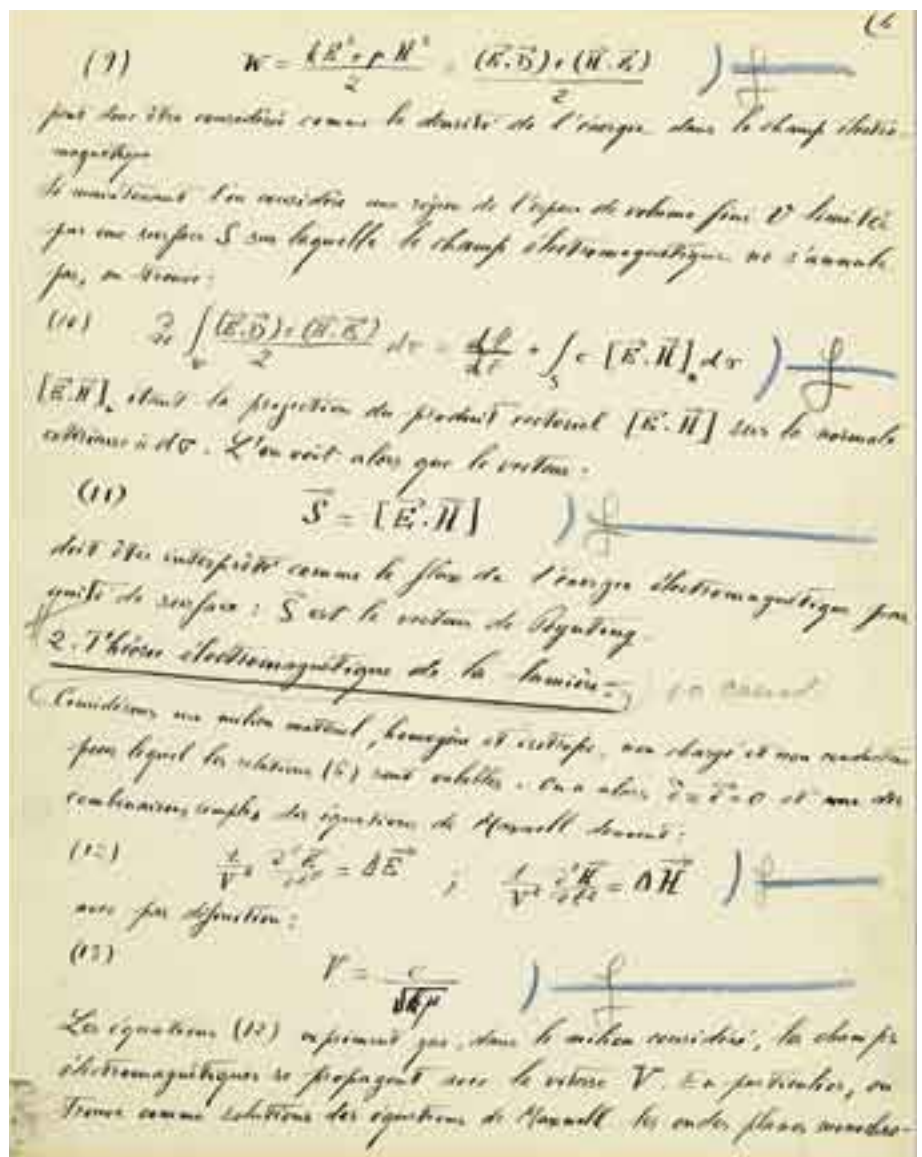 (9) W = (kE² + μH²)/2 = ((E⃗.D⃗)+(H⃗.B⃗))/2
peut donc être considérée comme la densité de l'énergie dans le champ électro-
magnétique
Si maintenant l'on considère une région de l'espace de volume fini V limitée
par une surface S sur laquelle le champ électromagnétique ne s'annule
pas, on trouve :
(10) ∫ ((E⃗.D⃗)+(H⃗.B⃗))/2 dτ = + ∫_S c [E⃗.H⃗]_n dσ
[E⃗.H⃗]_n étant la projection du produit vectoriel [E⃗.H⃗] sur la normale
extérieure à dσ. L'on voit alors que le vecteur :
(11) S⃗ = [E⃗.H⃗]
doit être interprété comme le flux de l'énergie électromagnétique par
unité de surface : S⃗ est le vecteur de Poynting.
2. Théorie électromagnétique de la lumière.
Considérons un milieu matériel, homogène et isotrope, non chargé et non conducteur
pour lequel les relations (6) sont valables. On a alors = 0 et une des
combinaisons simples des équations de Maxwell donnent :
(12) 1/V² ∂²E⃗/∂t² = ΔE⃗ ; 1/V² ∂²H⃗/∂t² = ΔH⃗
avec par définition :
(13) V = c/√(kμ)
Les équations (12) expriment que, dans le milieu considéré, les champs
électromagnétiques se propagent avec la vitesse V. En particulier, on
trouve comme solutions des équations de Maxwell les ondes planes monochro-